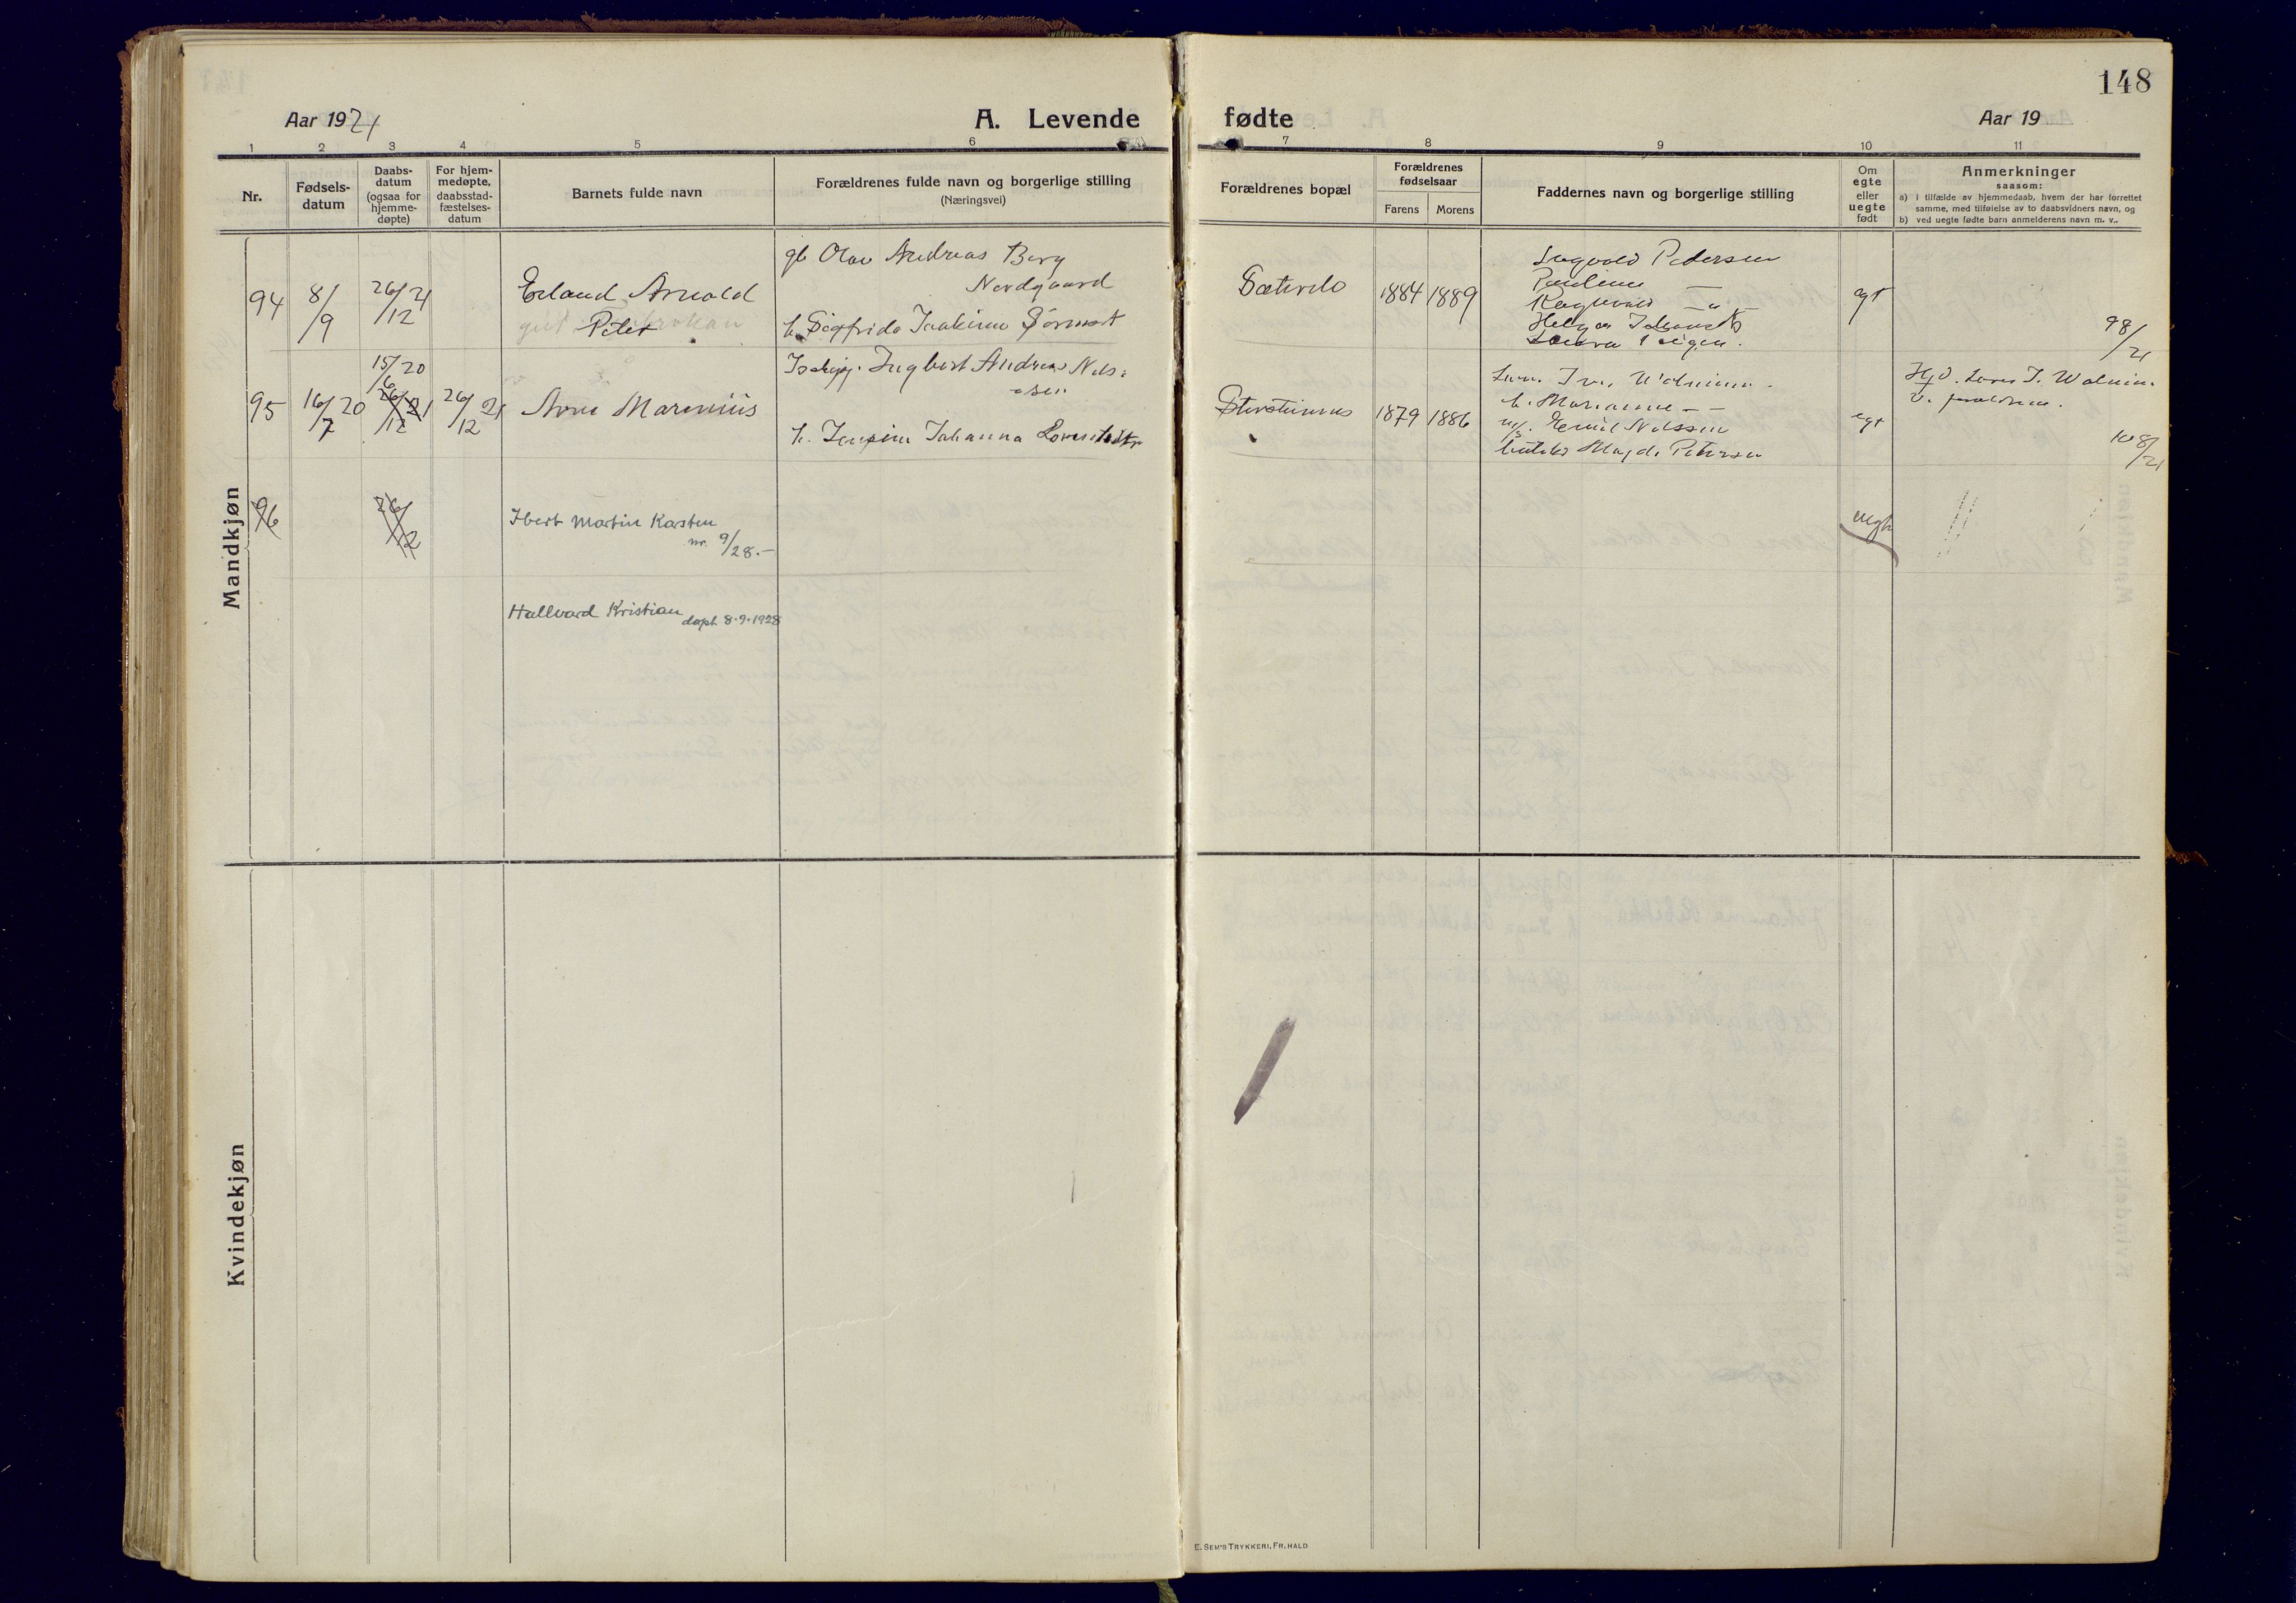 148
Aar 1921
A. Levende
fødte
Aar 19
1 2 3 4 5 6
7 8 9 10 11
Nr.
Fødsels-
datum
Daabs-
datum
(ogsaa for
hjemme-
døpte)
For hjem-
medøpte,
daabsstad-
fæstelses-
datum
Barnets fulde navn
Forældrenes fulde navn og borgerlige stilling
(Næringsvei)
Forældrenes bopæl
Forældrenes
fødselsaar
Farens
Morens
Faddernes navn og borgerlige stilling
Om
egte
eller
uegte
født
Anmerkninger
saasom:
a) i tilfælde av hjemmedaab, hvem der har forrettet
samme, med tilføielse av to daabsvidners navn, og
b) ved uegte fødte barn anmelderens navn m. v..
Mandkjøn
94
8/9
26/12 21
Erland Arnold
Peter
gb Olav Andreas Berg
Nordgaard
h. Sigfrida Joakime
1884
1889
Pedersen
Pauline —
— " —
Helga
egt
98/21
95
16/7 20
15/6 20
26/12 21
26/12 21
Arne Marenius
Ingbert Andreas Nils-
sen
h. Johanna
1879
1886
h. Marianne — —
Emil Nilssen
Petersen
egt
108/21
96
26/12
Ibert Martin Karsten
nr. 9/28.—
uegte
Hallvard Kristian
døpt 8.9.1928
Kvindekjøn
E. SEM'S TRYKKERI, FR.HALD